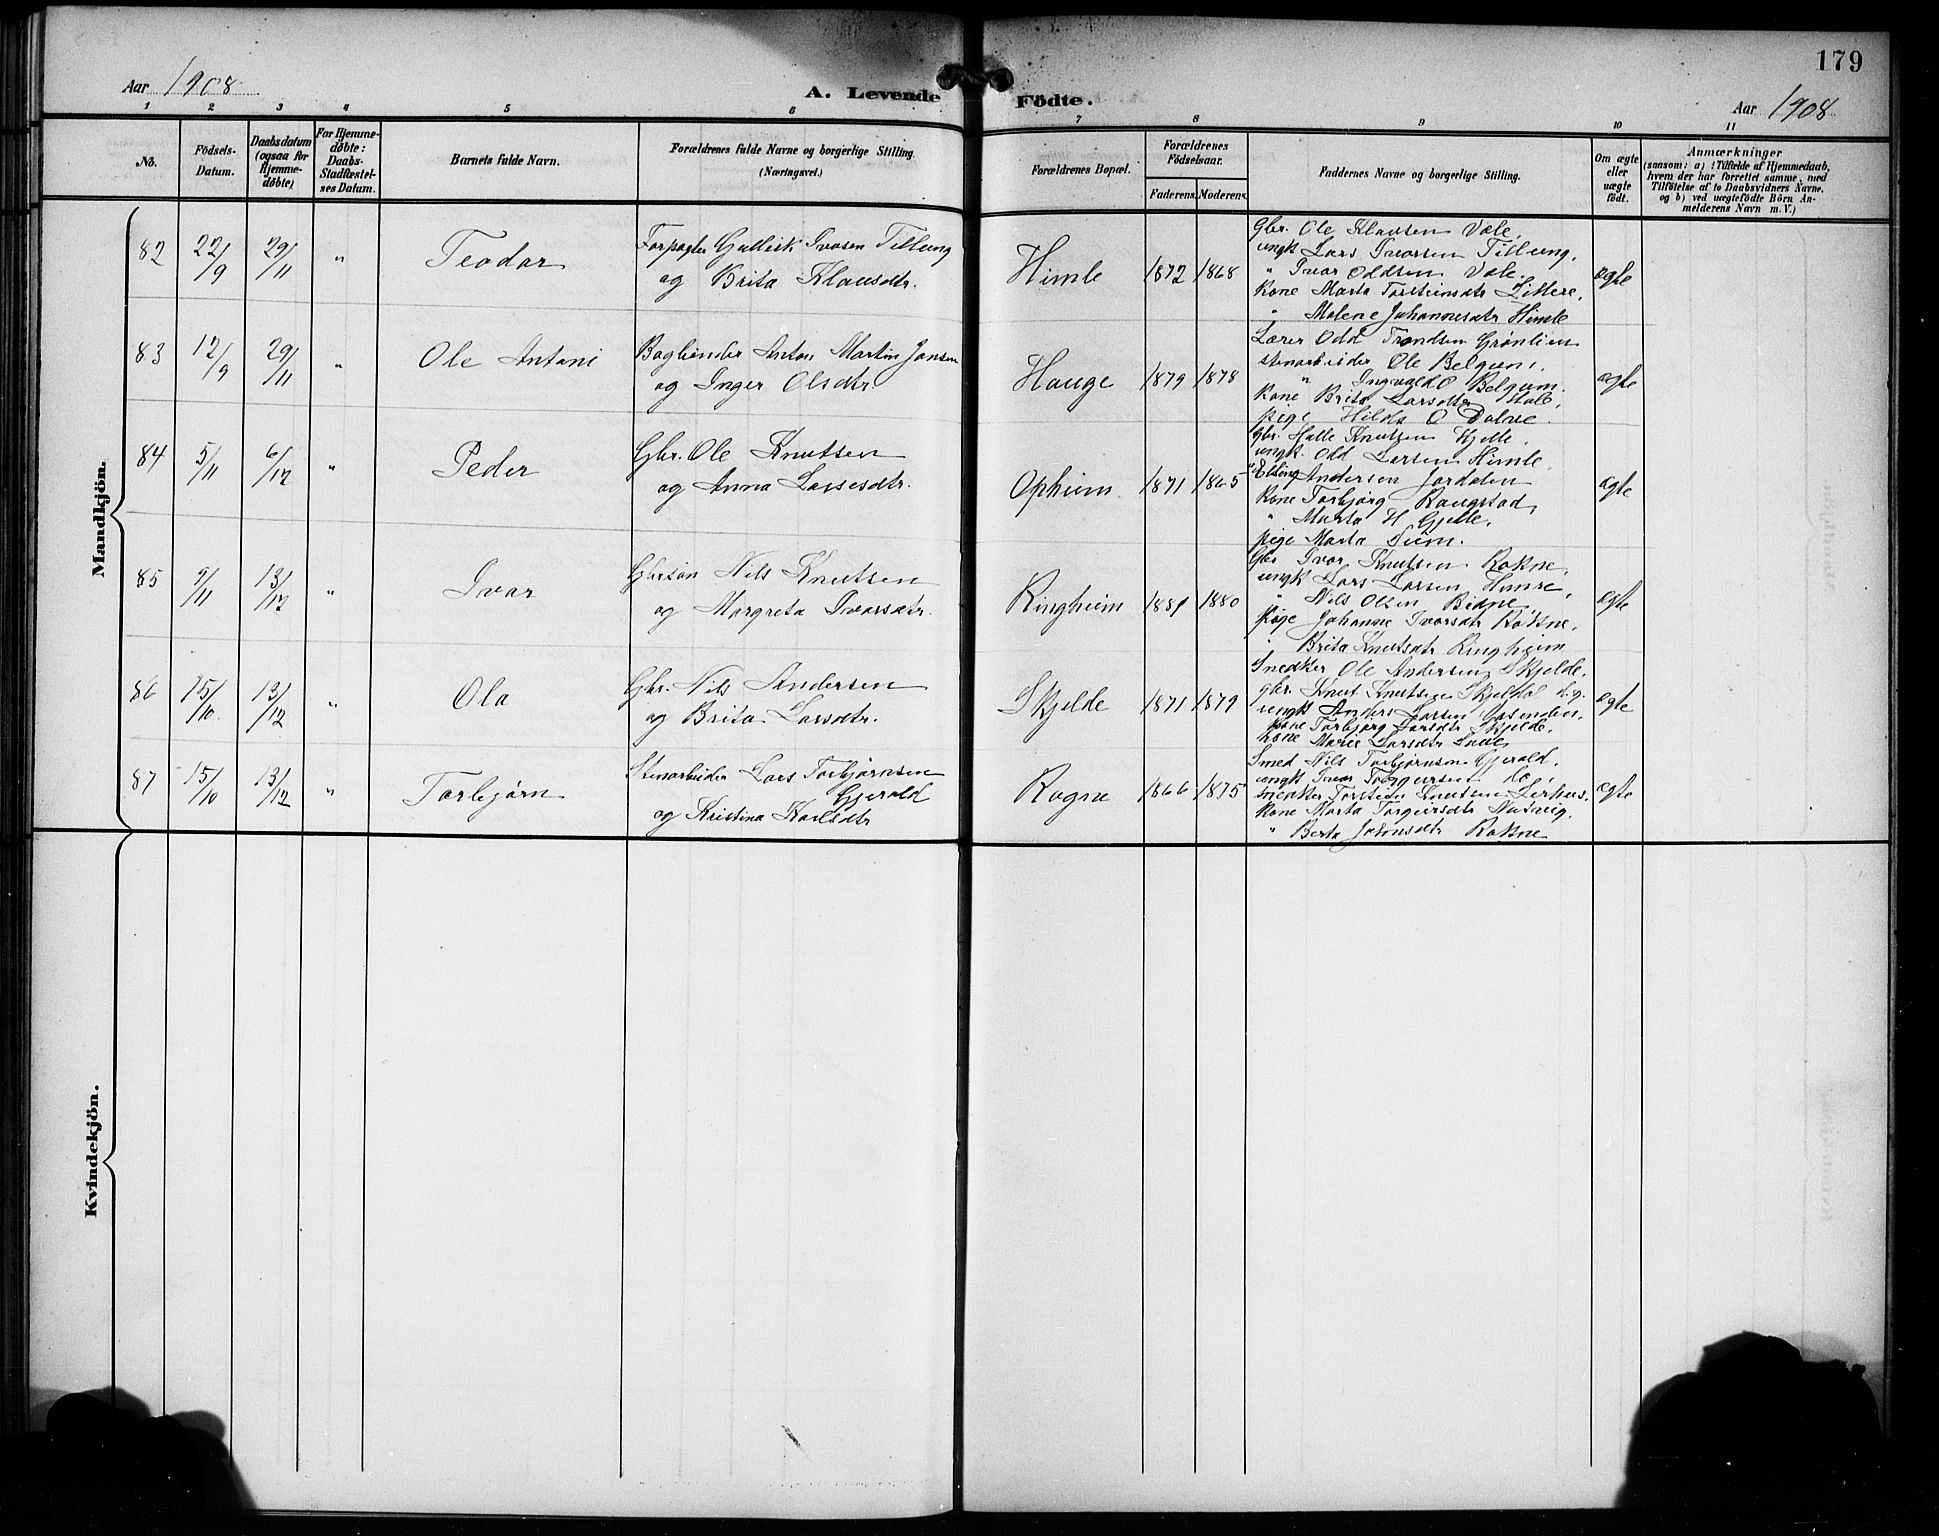 179
Aar 1908
A. Levende Födte.
Aar 1908
1 2 3 4 5 6 7 8 9 10 11
No.
Födsels-
Datum.
Daabsdatum
(ogsaa for
Hjemme-
döbte)
For Hjemme-
døbte:
Daabs-
Stadfæstel-
ses Datum.
Barnets fulde Navn.
Forældrenes fulde Navne og borgerlige Stilling.
(Næringsvei.)
Forældrenes Bopæl.
Forældrenes
Födselsaar.
Faderens.
Moderens.
Faddernes Navne og borgerlige Stilling.
Om ægte
eller
uægte
födt.
Anmærkninger
(saasom: a) i Tilfælde af Hjemmedaab,
hvem der har forrettet samme, med
Tilføielse af to Daabsvidners Navne,
og b) ved uægtefödte Börn An-
melderens Navn m. V.)
Mandkjön.
82 22/9 29/11 " Teodor
Forpagter Gulleik Ivarsen Tillung
og Brita Klausdtr.
Himle 1872 1868
Gbr. Ole Klausen Vale,
ungk Lars Ivarsen Tillung,
" Ivar Oddsen Vale.
Kone Marta Torsteinsdtr
" Malene Johannesdtr Himle
ægte
83 12/9 29/11 " Ole Antoni
Bogbinder Anton Martin Jansen
og Inger Olsdtr.
Hauge 1879 1878
Lærer Odd Trondsen Grønlien
stenarbeider Ole Belgum.
" Ingvald O Belgum.
Kone Brita Larsdtr
pige Hilda O Dolve.
ægte
84 5/11 6/12 " Peder
Gbr. Ole Knutsen
og Anna Larsesdtr.
Opheim 1871 1865
Gbr. Halle Knutsen Gjelle.
ungk. Odd Larsen Himle.
" Elling Andersen Jordalen
Kone Torbjørg Raugstad,
" Marta H Gjelle.
pige Marta
ægte
85 9/11 13/12 " Ivar
Gbrsøn Nils Knutsen
og Margreta Ivarsdtr.
Ringheim 1881 1880
Gbr Ivar Knutsen Rokne,
ungk Lars Larsen Himle,
" Nils Olsen Bidne,
pige Johanne Ivarsdtr Rokne.
Brita Knutsdtr Ringheim
ægte
86 15/10. 13/12 " Ola
Gbr. Nils Andersen
og Brita Larsdtr.
Skjelde 1871 1879
Snedker Ole Andersen Skjelde,
gbr. Knut Knutsen Skjeldal
ungk Anders Larsen
Kone Torbjørg Larsdtr Skjelde.
kone Marie Larsdtr
ægte
87 15/10 13/12 " Torbjørn
Stenarbeider Lars Torbjørnsen
Gjerald
og Kristina Karlsdtr
Rogne 1866 1875
Smed Nils Torbjørnsen Gjerald.
ungk Ivar Torgeirsen do,
snedker Torstein Knutsen Lirhus.
Kone Marta Torgeirsdtr
" Berta Rokne
ægte
Kvindekjön.